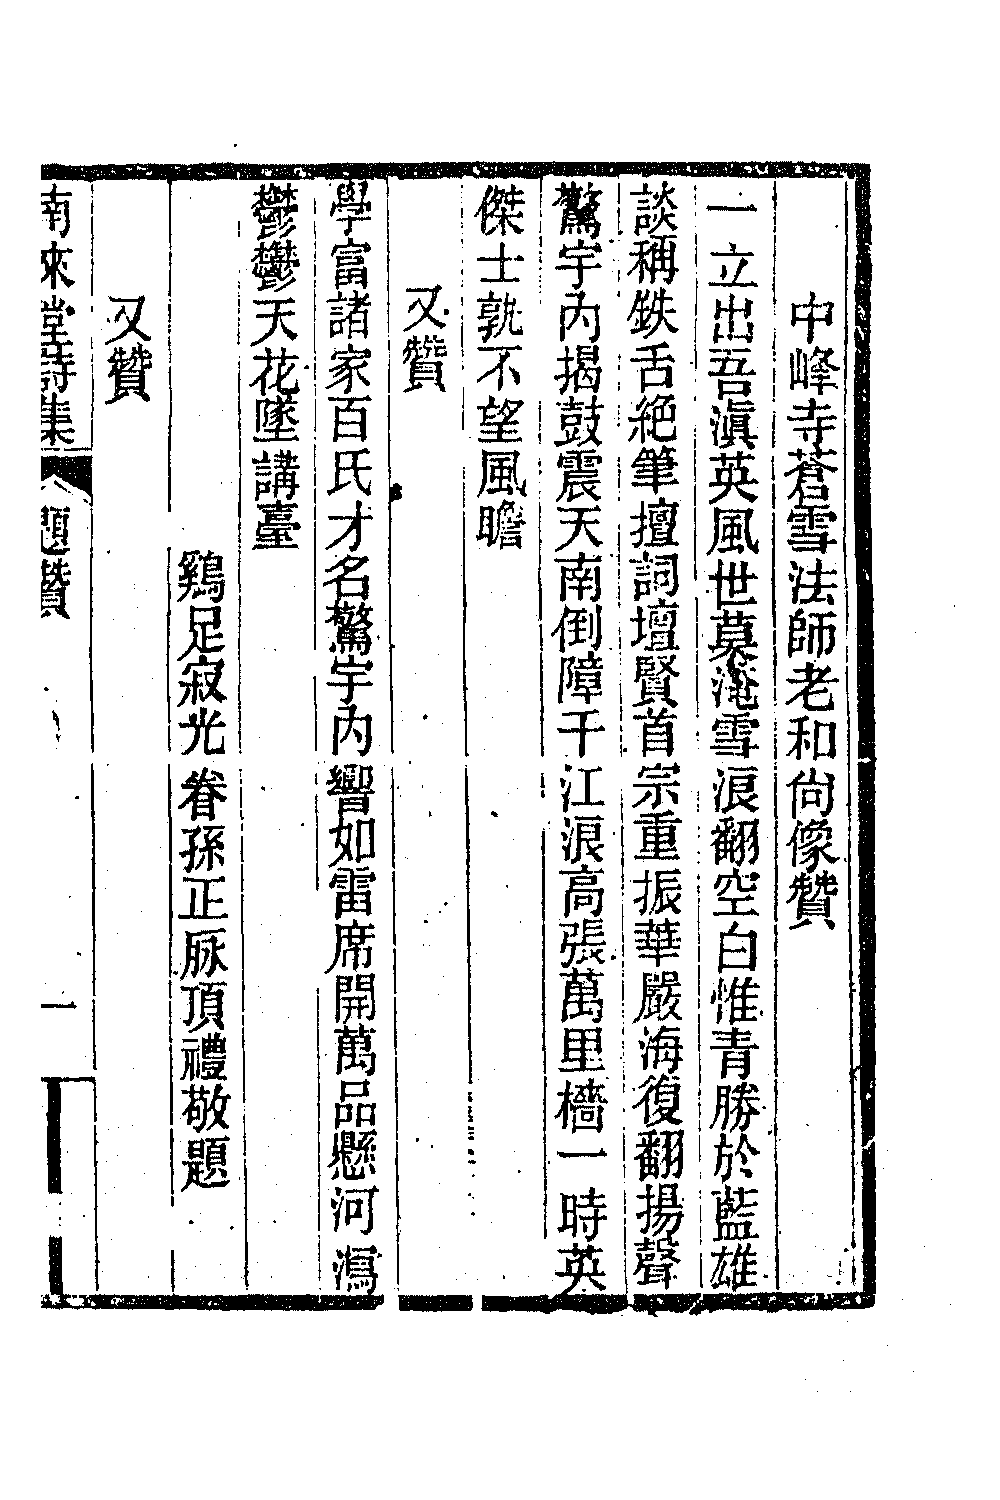 中峰寺蒼雪法師老和尙像贊
一立出吾滇英風世莫淹雪浪翻空白惟青勝於藍雄
談稱鉄舌絶筆擅詞壇賢首宗重振華嚴海復翻揚聲
驚宇內揭鼓震天南倒障千江浪高張萬里檣一時英
傑士孰不望風瞻
又贊
學富諸家百氏才名驚宇內響如雷席開萬品懸河瀉
鬱鬱天花墜講臺
鷄足寂光眷孫正脉頂禮敬題
又贊
南來堂詩集 題贊 一